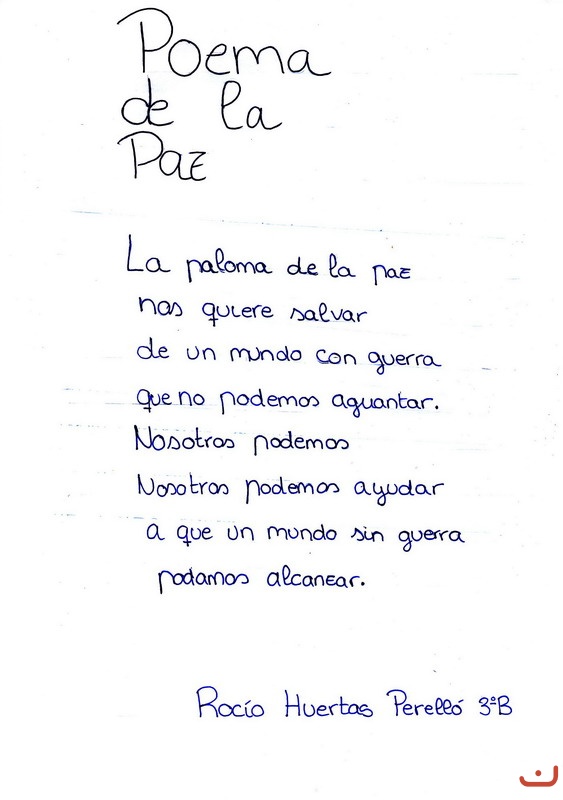 Poema
de la
Paz
La paloma de la paz
nos quiere salvar
de un mundo con guerra
que no podemos aguantar.
Nosotros podemos
Nosotros podemos ayudar
a que un mundo sin guerra
podamos alcanzar.
Rocío Huertas Perelló 3ºB